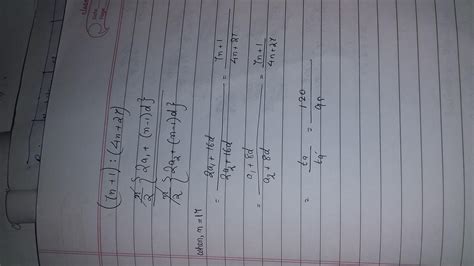 (7n+1) : (4n+27)
n/2 {2a₁ + (n-1)d}
n/2 {2a₂ + (n-1)d}
when, n = 17
2a₁ + 16d / 2a₂ + 16d = 7n+1 / 4n+27
= a₁ + 8d / a₂ + 8d = 7n+1 / 4n+27
= = 120 / 95